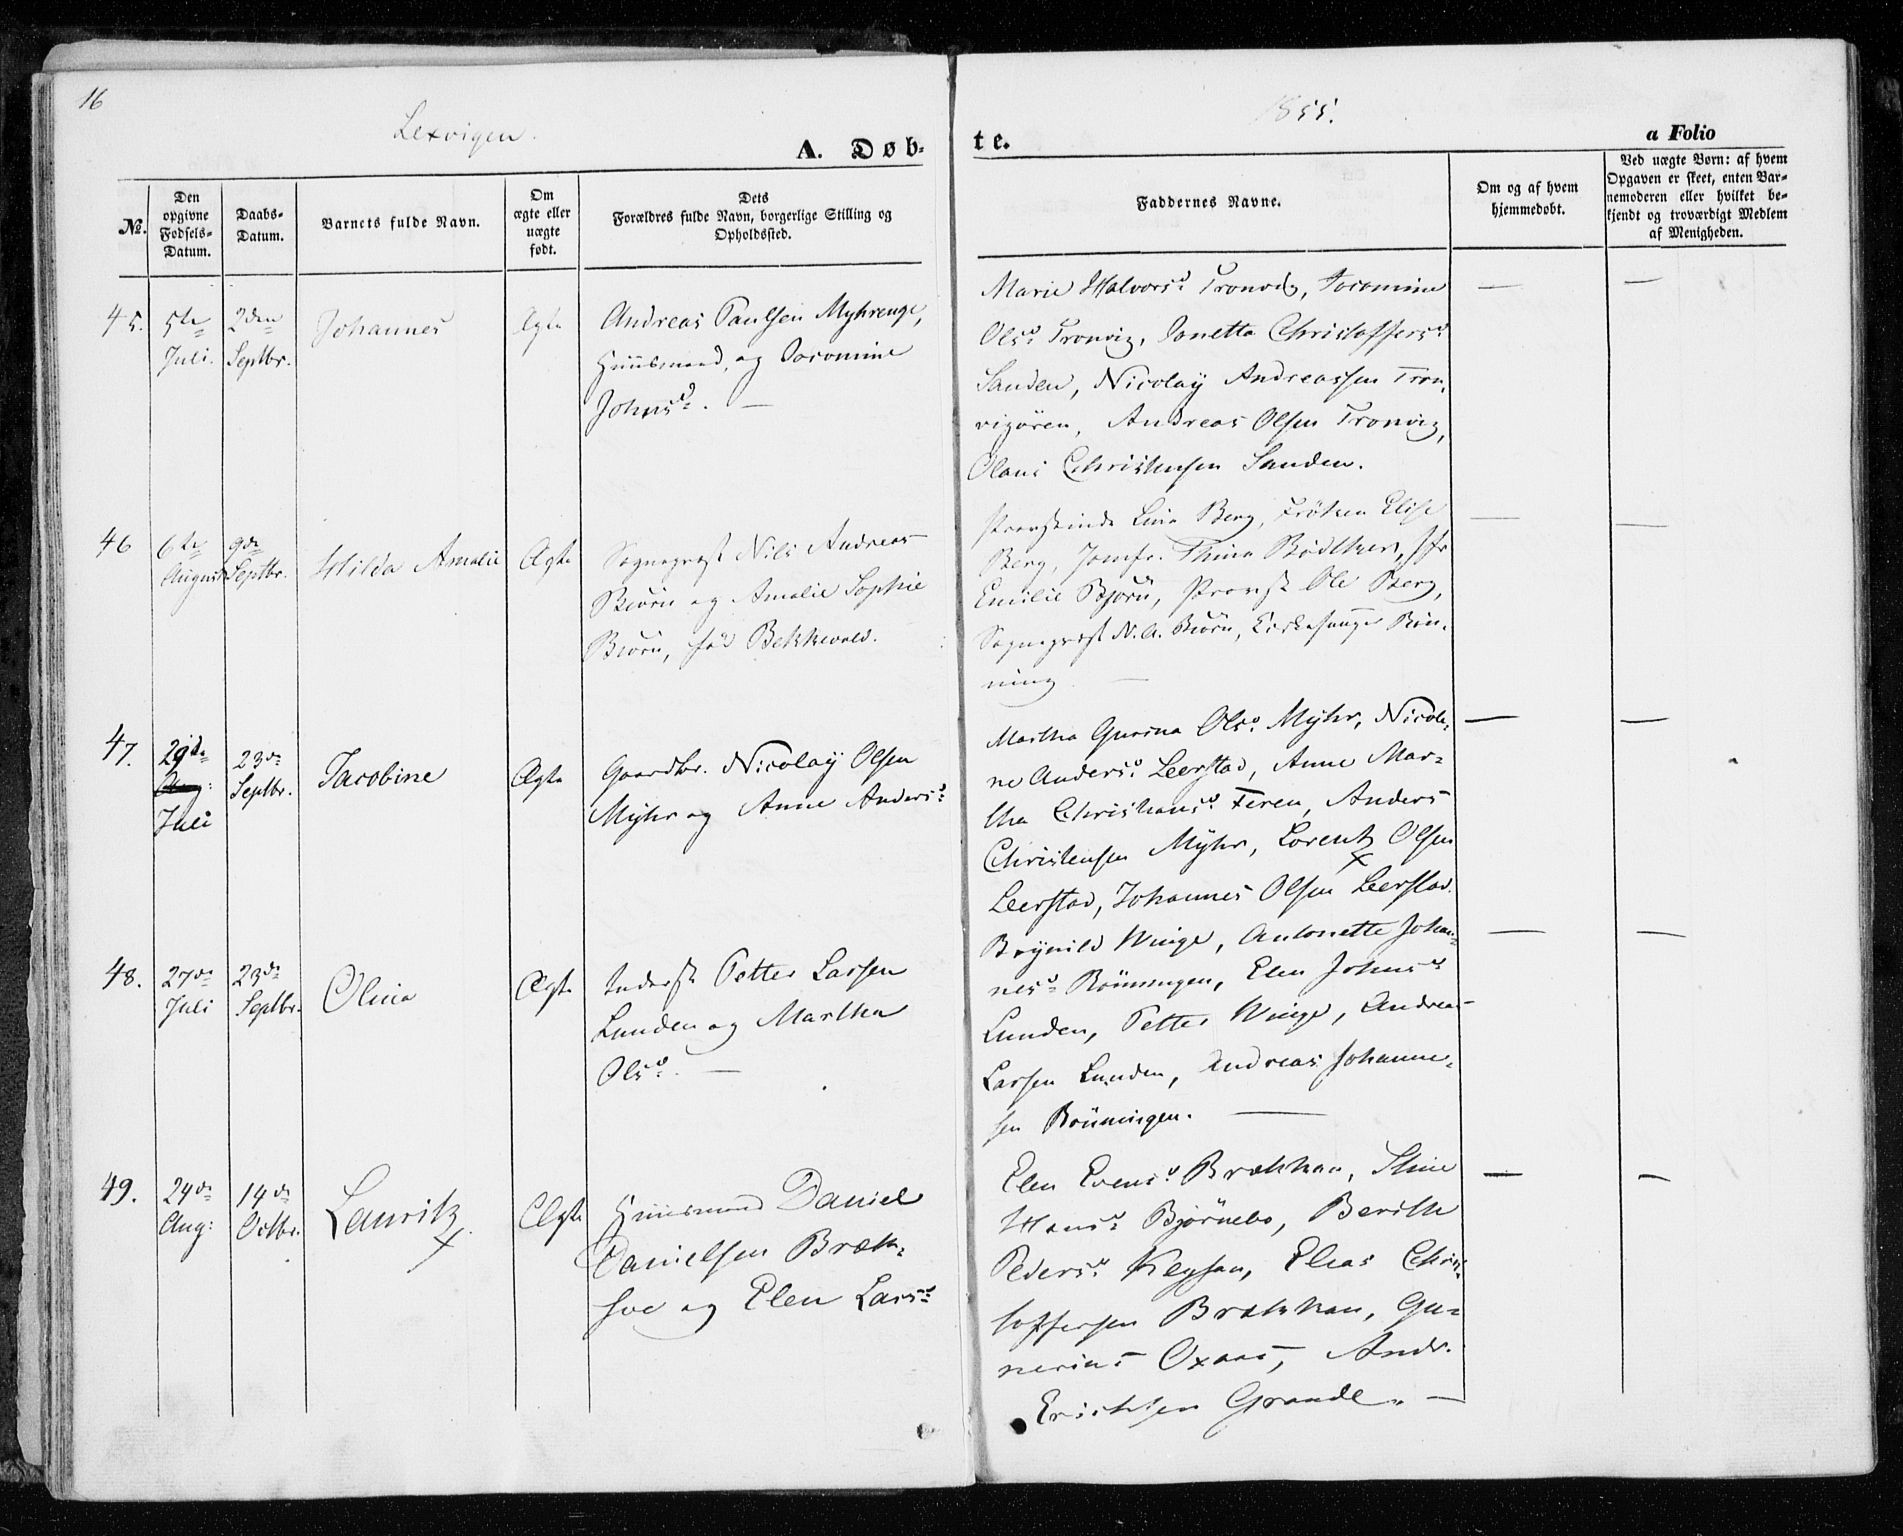 16
Lexvigen.
1855.
A. Døb-
te.
a Folio
No.
Den opgivne Fødsels-Datum.
Daabs-Datum.
Barnets fulde Navn.
Om ægte eller uægte født.
Dets Forældres fulde Navn, borgerlige Stilling og Opholdssted.
Faddernes Navne.
Om og af hvem hjemmedøbt.
Ved uægte Børn: af hvem Opgaven er skeet, enten Barnemoderen eller hvilket bekjendt og troværdigt Medlem af Menigheden.
45.
5te Juli.
2den Septbr.
Johannes
Ægte
Andreas Paulsen Myhrenge,
Huusmand, og Joromine
Johnsd. —
Marie Halvorsd. Tronvig, Joromine
Olsd. Tronvig, Jonetta Christoffersd.
Sanden, Nicolaÿ Andreassen Tron-
vigøren, Andreas Olsen Tronvig,
Olaus Christensen Sanden.
—
—
46
6te August
9de Septbr.
Hilda Amalie
Ægte
Sognepræst Nils Andreas
Biørn og Amalie Sophie
Biørn, fød Bekkevold.
Provstinde Lina Berg, Frøken Elise
Berg, Jomfr. Thina Bødtker, Jfr
Emilie Bjørn, Provst Ole Berg,
Sognepræst N. A. Biørn, Kirkesanger Røn-
ning —
—
—
47.
29de Aug: Juli
23de Septbr.
Jacobine
Ægte
Gaardbr. Nicolaÿ Olsen
Mÿhr og Anne Andersd.
Martha Gurina Olsd. Mÿhr, Nicoli-
ne Andersd. Leerstad, Anne Mar-
tha Christiansd. Feren, Anders
Christensen Mÿhr, Lorentz Olsen
Leerstad, Johannes Olsen Leerstad.
—
—
48.
27de Juli
23de Septbr.
Olina
Ægte
Inderst Petter Larsen
Lunden og Martha
Olsd. —
Brÿnild Winge, Antonette Johan-
nesd. Rønningen, Elen Johnsd.
Lunden, Petter Winge, Andreas
Larsen Lunden, Andreas Johanne-
sen Rønningen. —
—
—
49.
24de Aug:
14de Octbr.
Lauritz
Ægte
Huusmand Daniel
Danielsen Bræk-
hoe og Elen Larsd.
Elen Evensd. Brækkan, Stine
Hansd. Bjørnebo, Berith
Pedersd. Kleyhan, Elias Chri-
stoffersen Brækkan, Gu-
nerius Oxaas, Andr.
Erichsen Grande. —
—
—